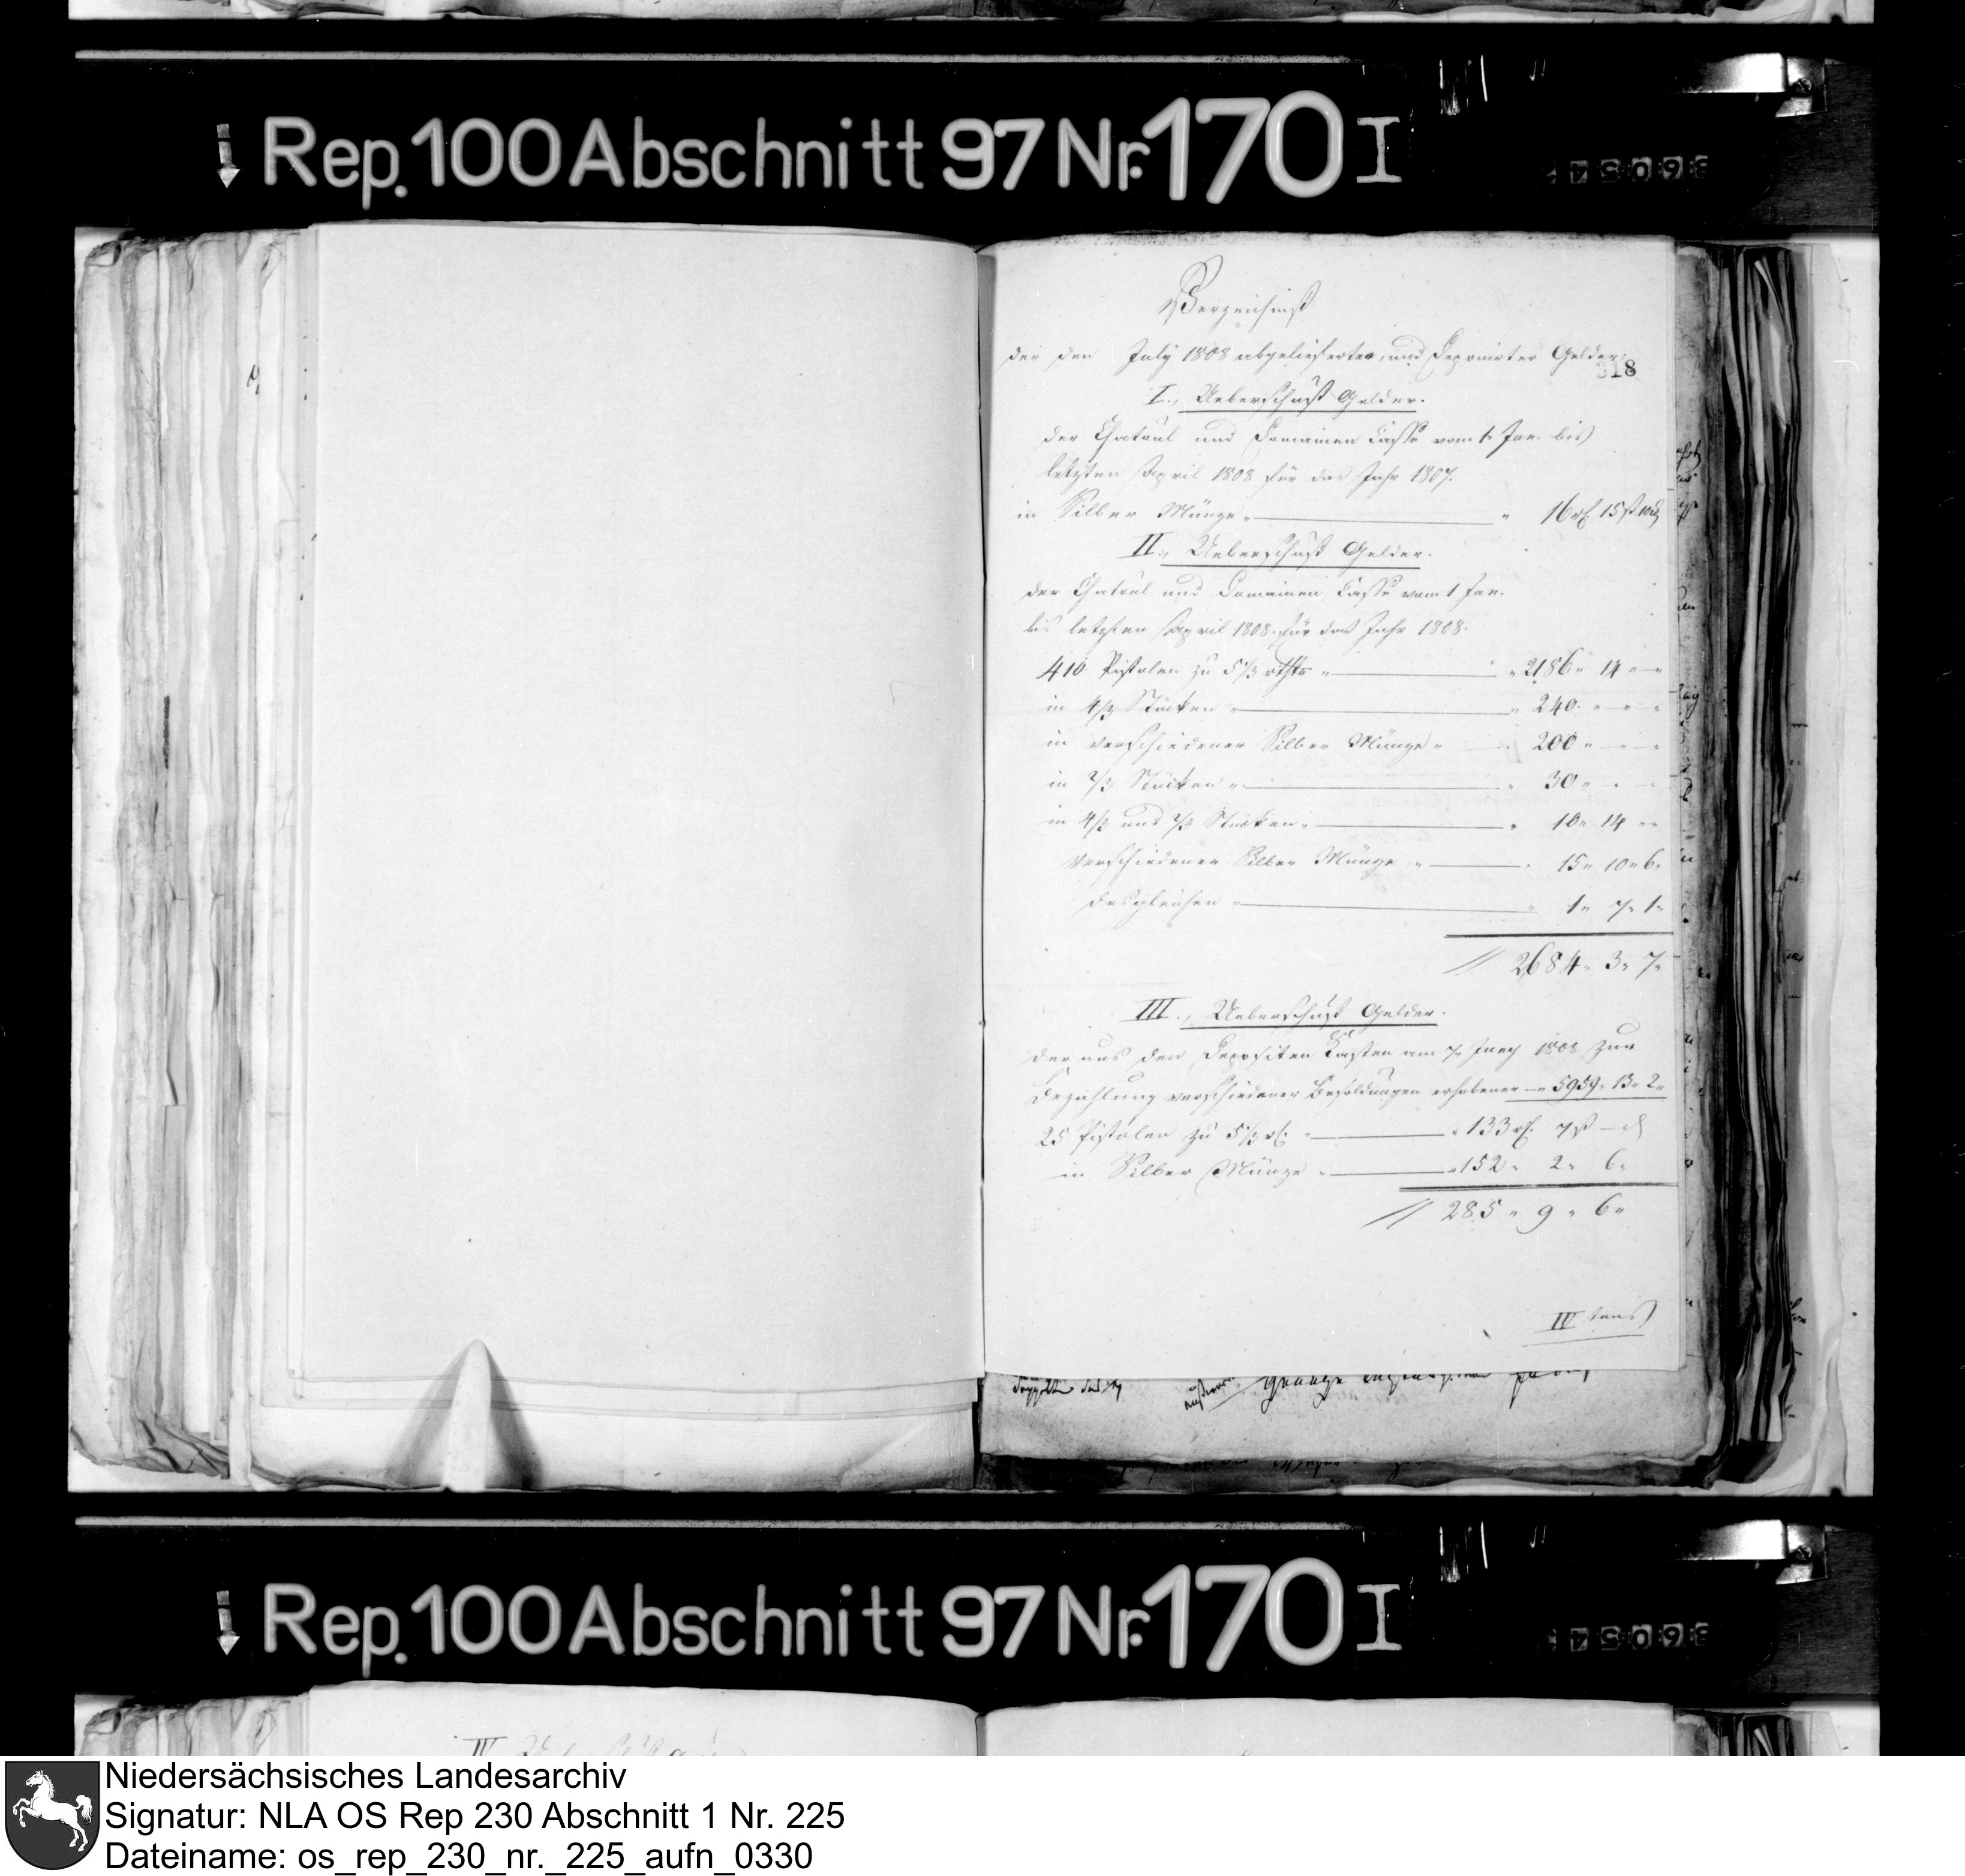 Rep. 100 Abschnitt 97 Nr. 170 I
Verzeichniß
der den July 1808 abgelieferter, und Deponirter Gelder:
318
I., Ueberschuß Gelder.
der Chatoul und Domainen Casse vom 1. Jan. bis
letzten April 1808 für das Jahr 1807.
in Silber Münze „ — „ 16 rt. 15 ß 10 d
II., Ueberschuß Gelder.
der Chatoul und Domainen Casse vom 1 Jan.
bis letzten April 1808. für das Jahr 1808.
410 Pistolen zu 5 1/3 rthlr „ — „ 2186 „ 14 „ — „
in 4/3 Stücken „ — „ 240 „ „ — „
in verschiedener Silber Münze „ — 200 „ — „ — „
in 2/3 Stücken „ — „ 30 „ — „
in 4/3 und 2/3 Stücken „ — „ 10 „ 14 „ „
verschiedener Silber Münze „ — „ 15 „ 10 „ 6 „
desgleichen „ — „ 1 „ 7 „ 1 „
// 2684 „ 3 „ 7 „
III., Ueberschuß Gelder.
der aus dem Depositen Kasten am 7. Juny 1808 zur
Bezahlung verschiedener Besoldungen erhobener — „ 5959 „ 13 „ 2 „
25 Pistolen zu 5 1/3 rt. „ — „ 133 rt. 7 ß — d
in Silber Münze „ — „ 152 „ 2 „ 6 „
// 285 „ 9 „ 6 „
IV tens
Rep. 100 Abschnitt 97 Nr. 170 I
Niedersächsisches Landesarchiv
Signatur: NLA OS Rep 230 Abschnitt 1 Nr. 225
Dateiname: os_rep_230_nr._225_aufn_0330